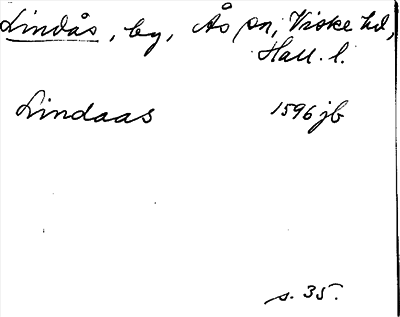 Lindås, by, Ås sn, Viske hd,
Hall. l.
Lindaas 1596 jb
s. 35.